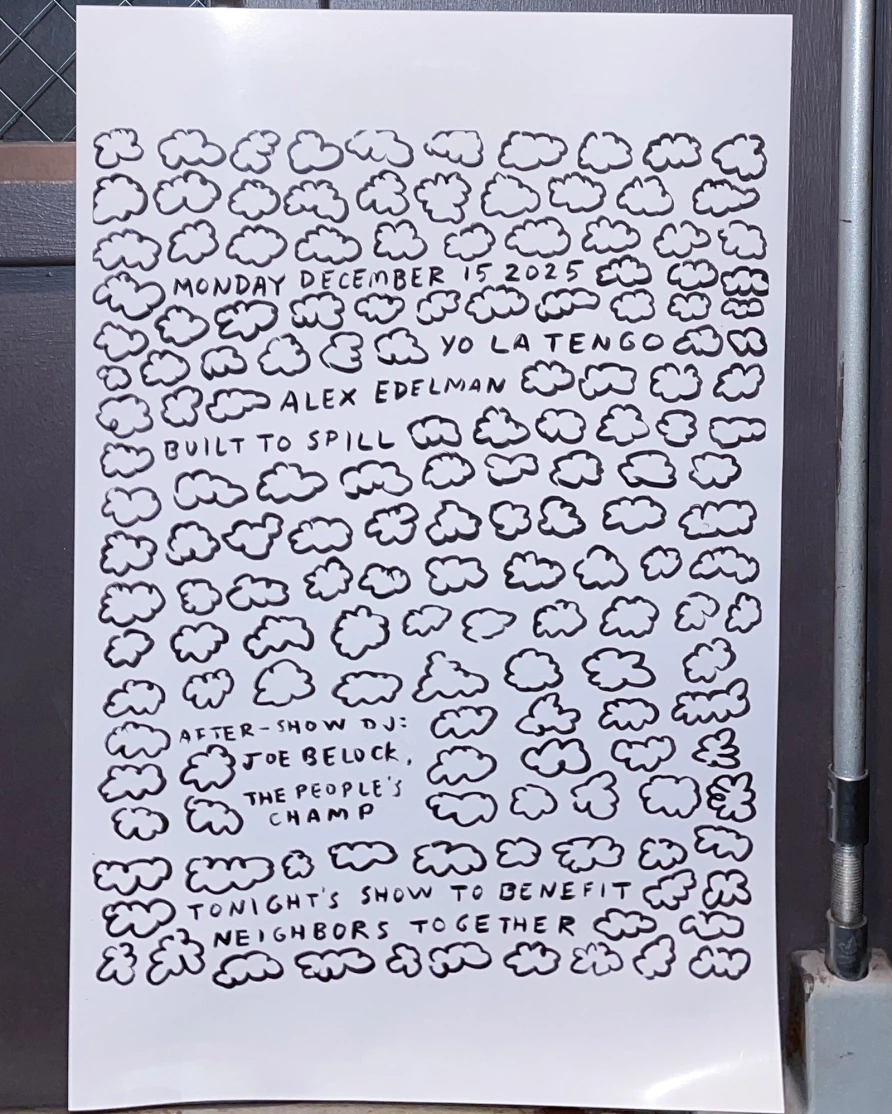 MONDAY DECEMBER 15 2025
YO LA TENGO
ALEX EDELMAN
BUILT TO SPILL
AFTER-SHOW DJ:
JOE BELOCK,
THE PEOPLE'S
CHAMP
TONIGHT'S SHOW TO BENEFIT
NEIGHBORS TOGETHER